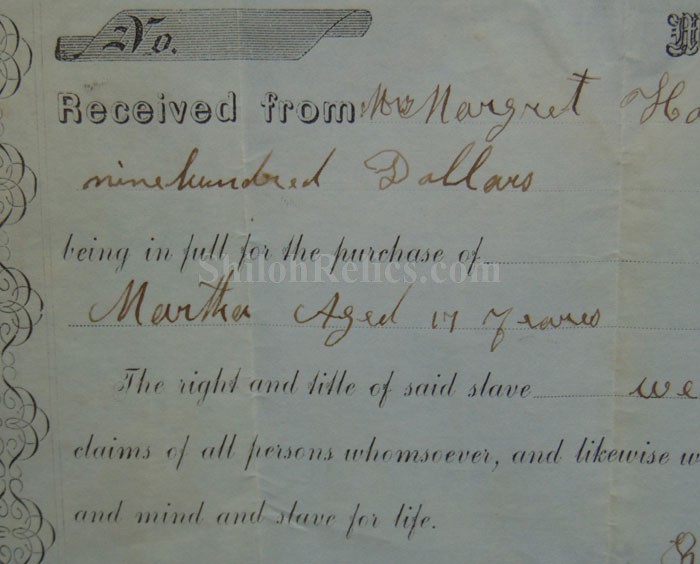 No.
Received from Mrs Margret Ha
ninehundred Dollars
being in full for the purchase of
ShilohRelics.com
Martha Aged 17 Years
The right and title of said slave we
claims of all persons whomsoever, and likewise w
and mind and slave for life.